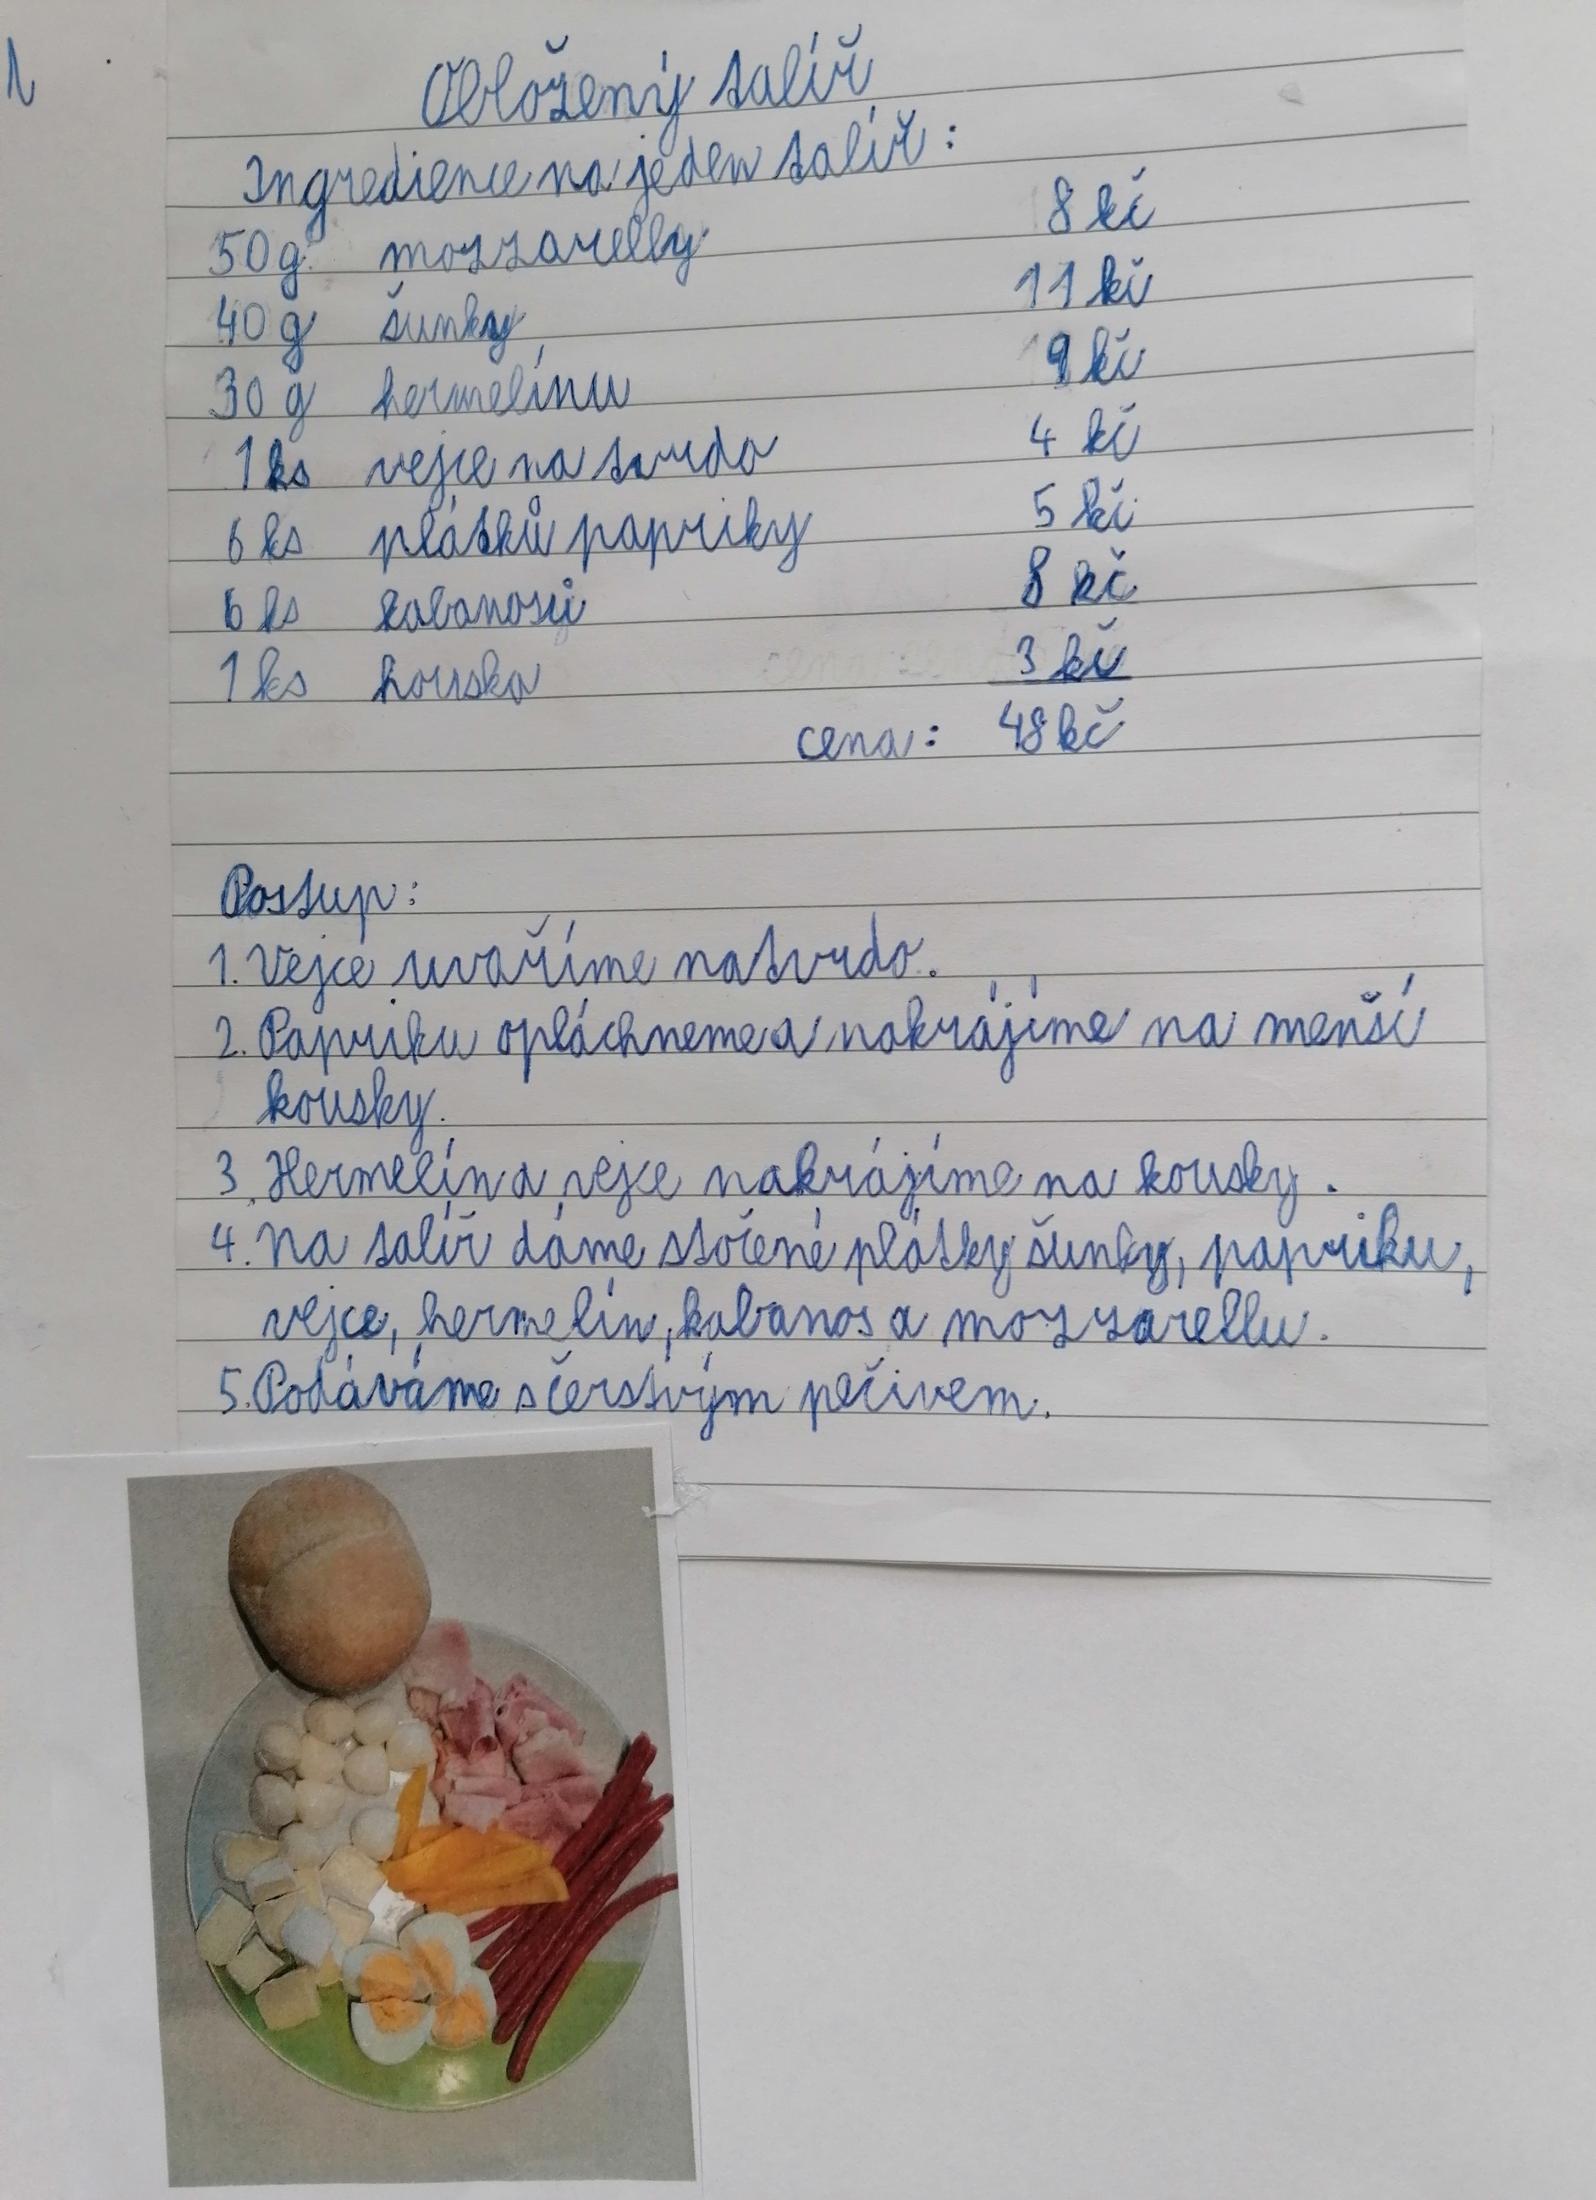 1
Obložený talíř
Ingredience na jeden talíř:
50g mozzarelly 8 kč
40 g šunky 11 kč
30 g hermelínu 9 kč
1 ks vejce na tvrdo 4 kč
6 ks plátků papriky 5 kč
6 ks kabanosů 8 kč
1 ks houska 3 kč
cena: 48 kč
Postup:
1. Vejce uvaříme natvrdo.
2. Papriku opláchneme a nakrájíme na menší
kousky.
3. Hermelín a vejce nakrájíme na kousky.
4. Na talíř dáme stočené plátky šunky, papriku,
vejce, hermelín, kabanos a mozzarellu.
5. Podáváme s čerstvým pečivem.